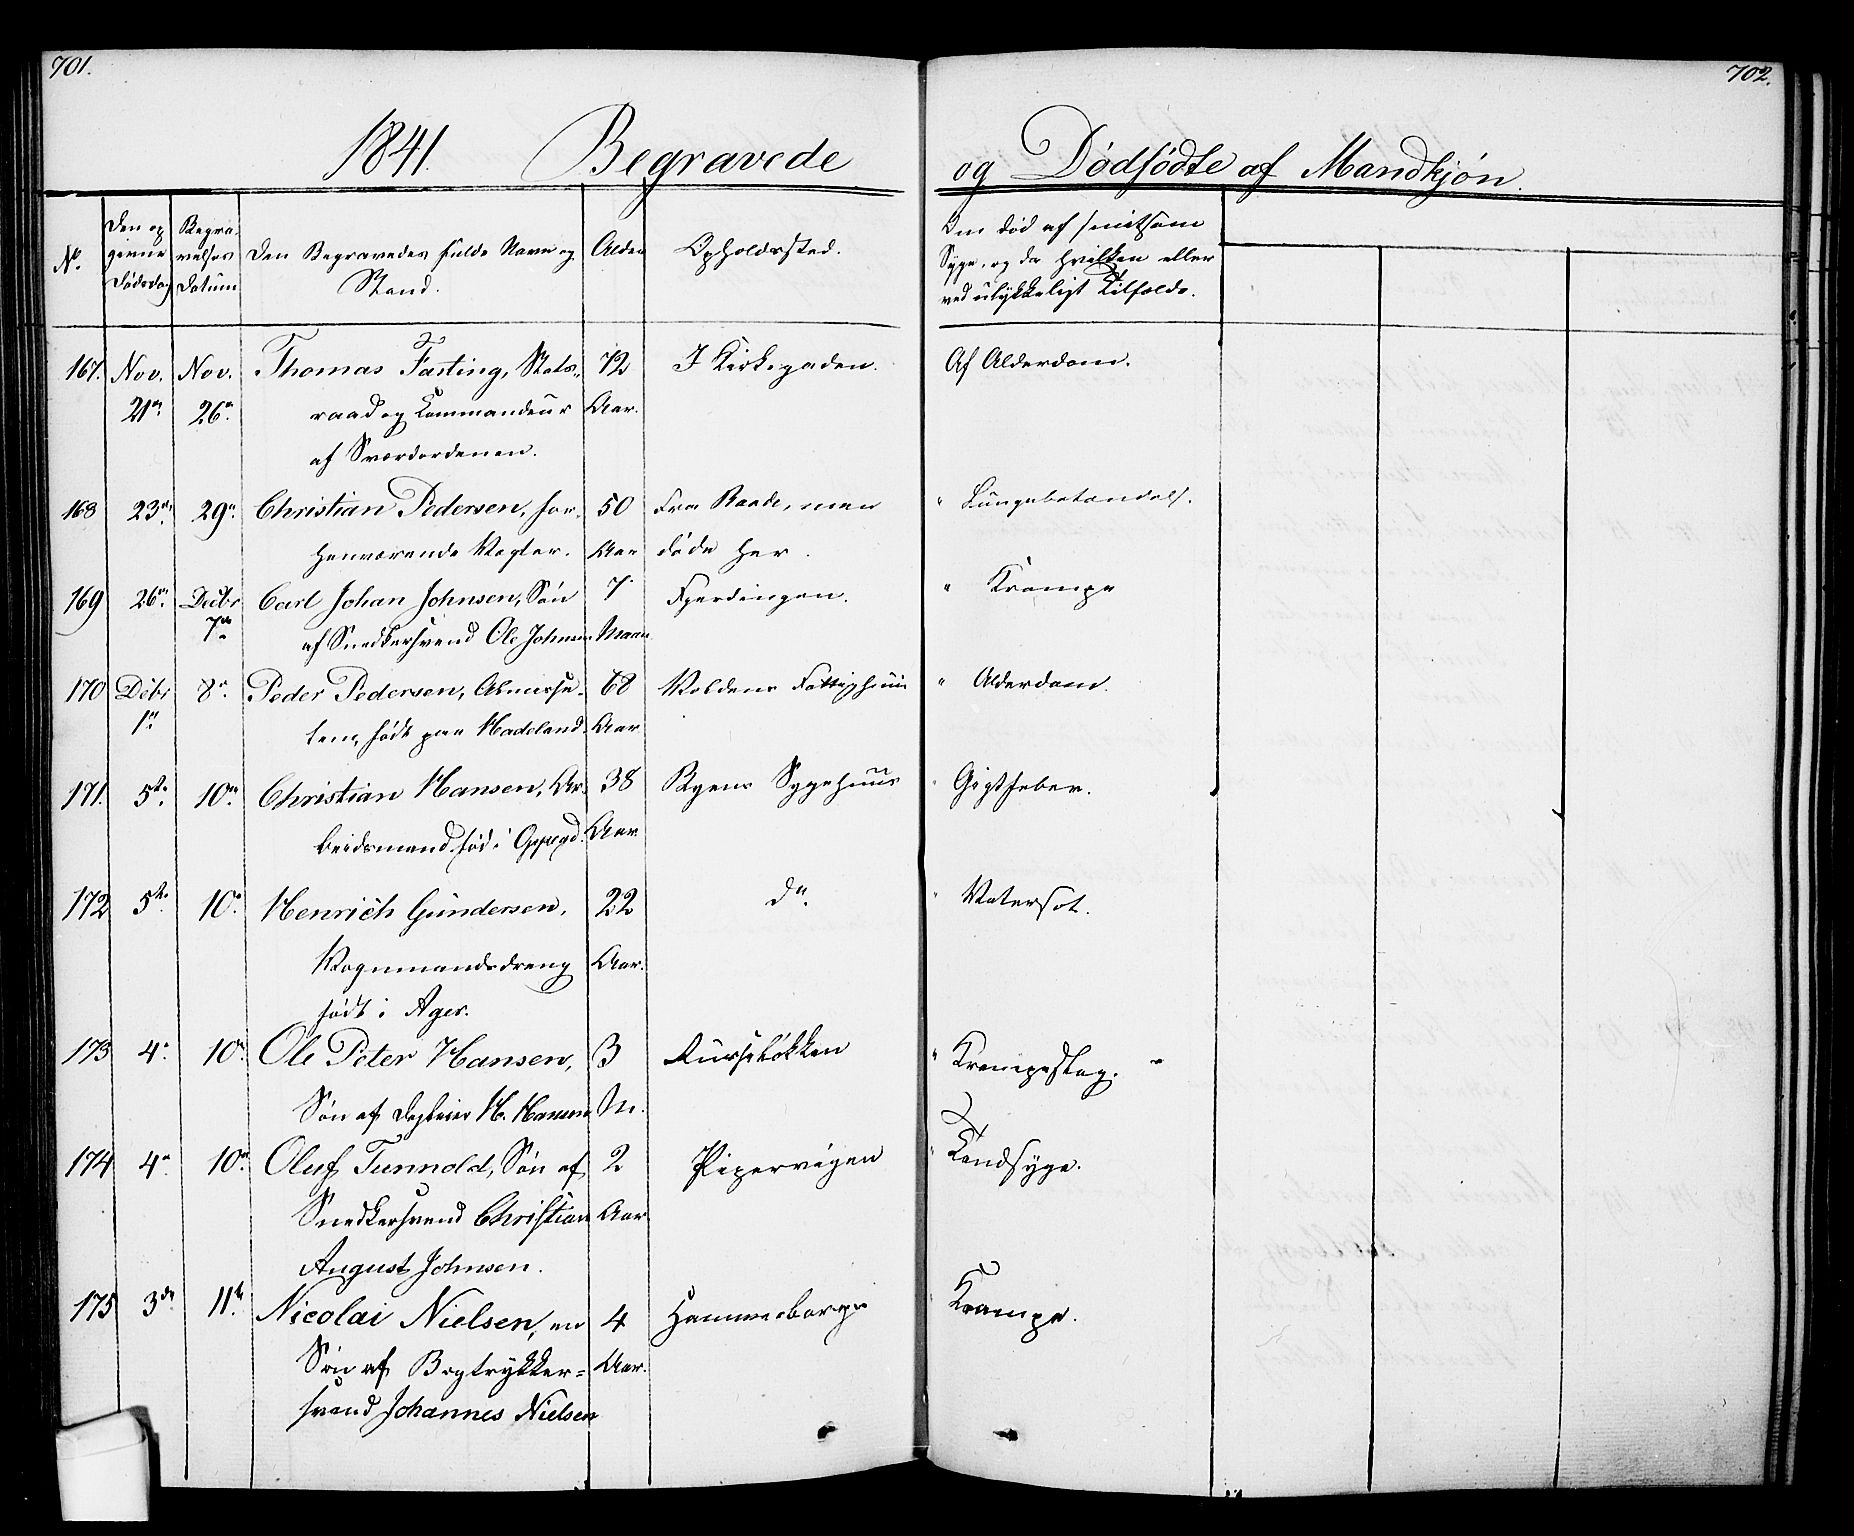 701.
702.
1841. Begravede og Dødfødte af Mandkjøn.
No. | Den opgivne Dødsdag | Begravelses Datum | Den Begravedes fulde Navn og Stand. | Alder | Opholdssted. | Om død af smitsom Syge, og da hvilken eller ved ulykkeligt Tilfælde.
167. Nov. Nov. Thomas Fasting, Stats- 72 I Kirkegaden. Af Alderdom.
21de 26de raad og Commandeur Aar.
af Sværdordenen.
168 23de 29de Christian Pedersen, for- 50 Fra Raade, men " Lungebetændelse.
henværende Vægter. Aar døde her.
169 26de Decbr Carl Johan Johnsen, Søn 7 Fjerdingen. " Krampe
7de af Snedkersvend Ole Johnsen Maan
170 Decbr 8de Peder Pedersen, Almisse- 68 Voldens Fattighuus " Alderdom.
1te lem, født paa Hadeland. Aar
171. 5te 10de Christian Hansen, Ar- 38 Byens Sygehuus " Gigtfeber.
beidsmand, fød i Oppegd. Aar
172 5te 10de Henrich Gundersen, 22 do. " Vatersot.
Vognmandsdreng Aar.
født i Ager.
173 4de 10de Ole Peter Hansen, 3 Ruseløkken " Krampeslag. "
Søn af H. Hansen M.
174 4de 10de Oluf Tunnold, Søn af 2 Pipervigen " Tandsyge.
Snedkersvend Christian Aar
August Johnsen.
175 3de 11te Nicolai Nielsen, en 4 Hammersborg Krampe.
Søn af Bogtrykker= Aar.
svend Johannes Nielsen